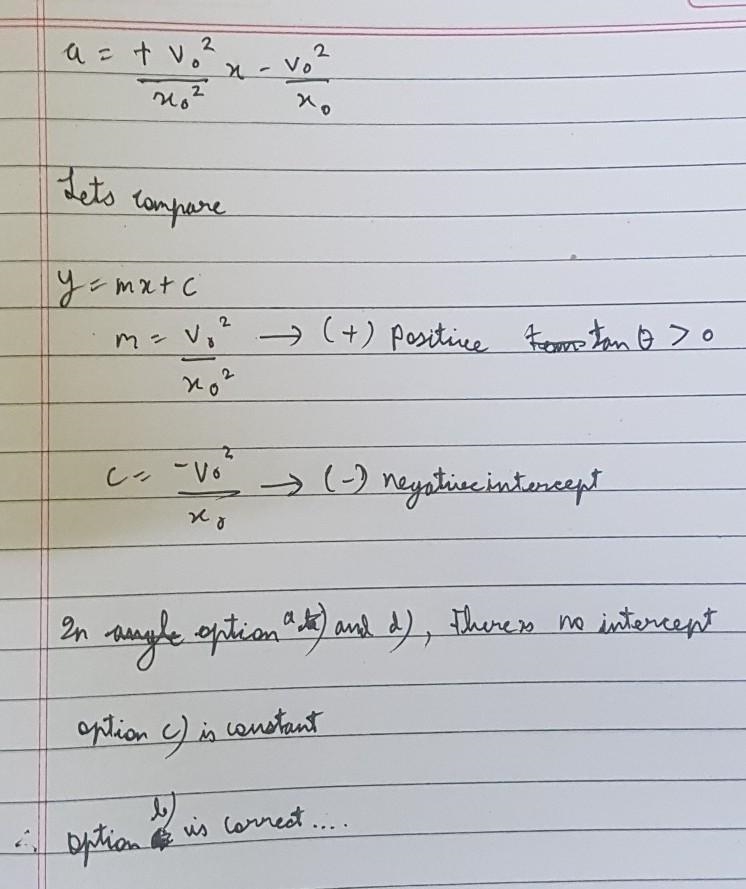 a = + v₀²/x₀² x - v₀²/x₀
Lets compare
y = mx + c
m = v₀²/x₀² → (+) Positive tan θ > 0
c = -v₀²/x₀ → (-) negative intercept
In option a) and d), there is no intercept
option c) is constant
∴ option b) is correct....